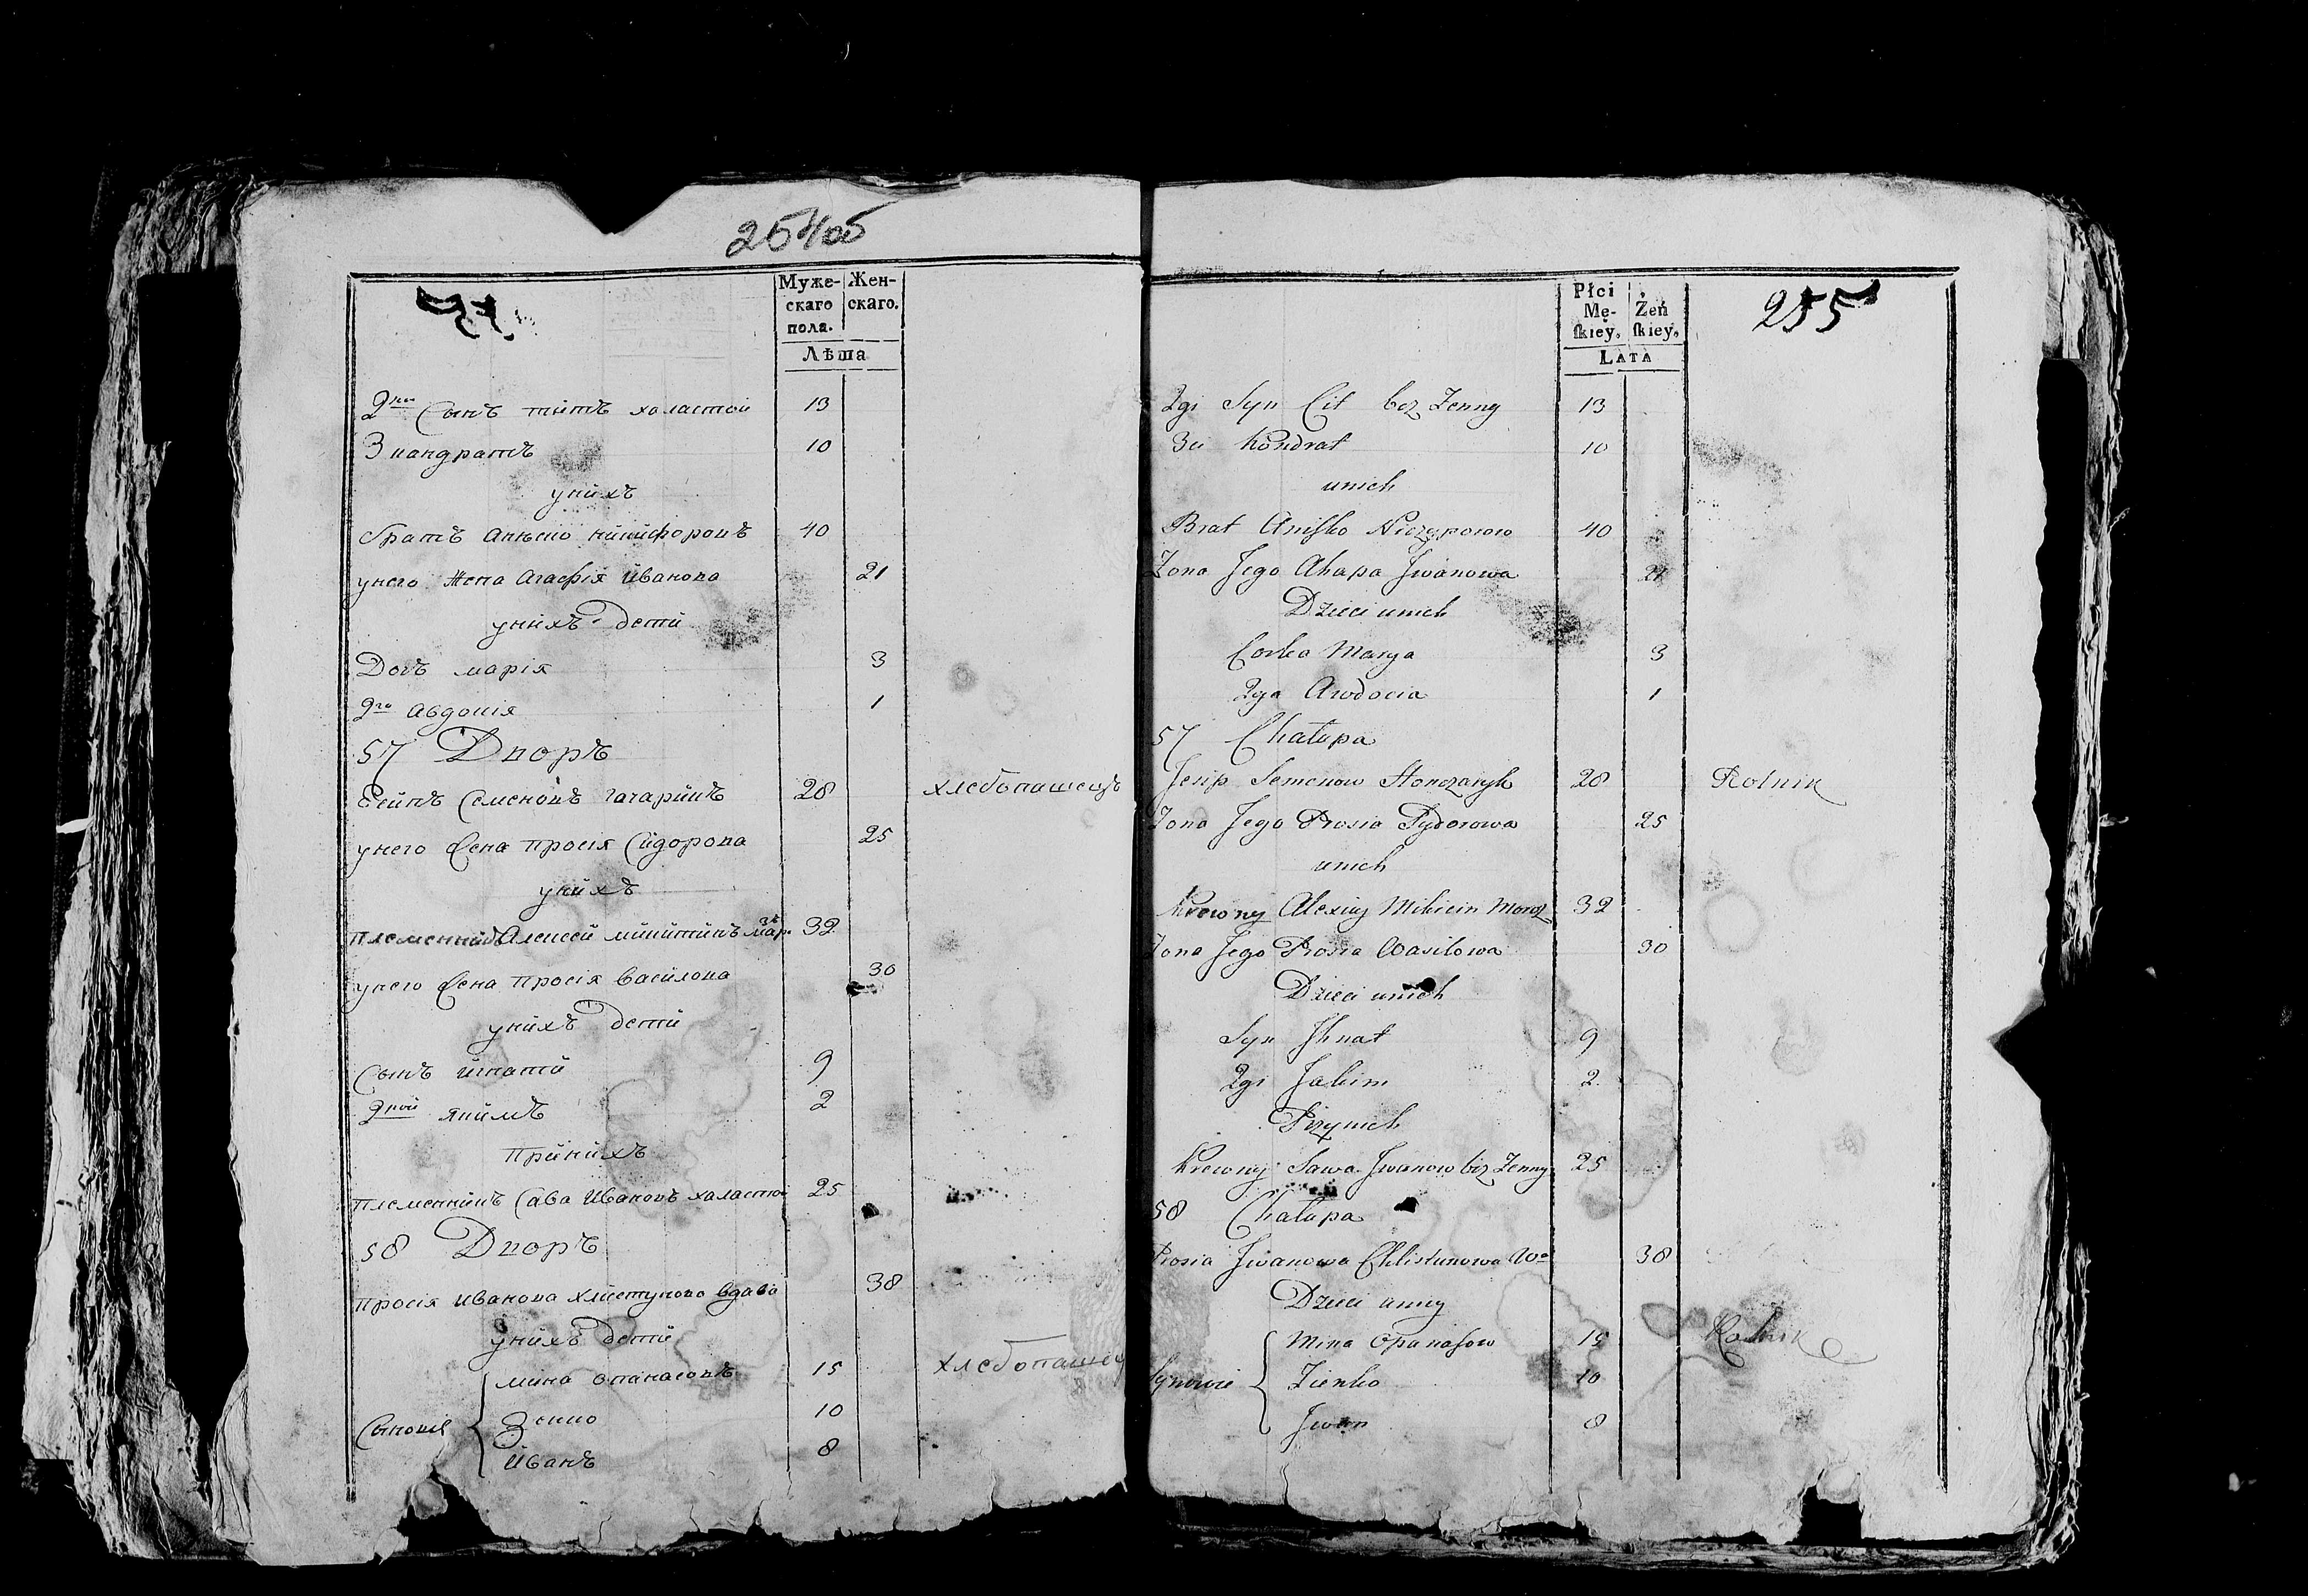 254об
Муже-
скаго
пола.
Жен-
скаго.
Лѣта
2ки Сынъ титъ халастой 13
3 кандратъ 10
унихъ
братъ Анѣско никифоровъ 40
унего Жена Агафія Иванова 21
унихъ дети
Дочъ марія 3
2го Авдокія 1
57 Дворъ
Есипъ Семеновъ гачарикъ 28 хлебопашецъ
унего Жена прося Сидорова 25
унихъ
племенникъ Алексей микитинъ мар. 32
унего Жена прося василова 30
унихъ дети
Сынъ игнатй 9
2кой якимъ 2
При нихъ
племенникъ Сава Ивановъ халастой 25
58 Дворъ
прося иванова хлистунова вдава 38
унихъ дети
Сыновѣ
мина опанасовъ 15 хлебопашец
Зенко 10
Иванъ 8
255
Płci
Mę-
ſkiey.
Żeń
ſkiey.
LATA
2gi Syn Cit bez Zenny 13
3ci Kondrat 10
unich
Brat Anisko Niczyporow 40
Zona Jego Ahapa Jwanowa 21
Dzieci unich
Corka Marya 3
2ga Awdocia 1
57 Chałupa
Jesip Semenow Honczaryk 28 Rolnik
Zona Jego Prosia Sydorowa 25
unich
Krewny Alexiey Mikicin Moroz 32
Zona Jego Prosia Wasilowa 30
Dzieci unich
Syn Jhnat 9
2gi Jakim 2
Przynich
Krewny Sawa Jwanow bez Zenny 25
58 Chałupa
Prosia Jwanowa Chlistunowa Wa 38
Dzieci uniey
Synowie
Mina Opanasow 15 Rolnik
Zienko 10
Jwan 8